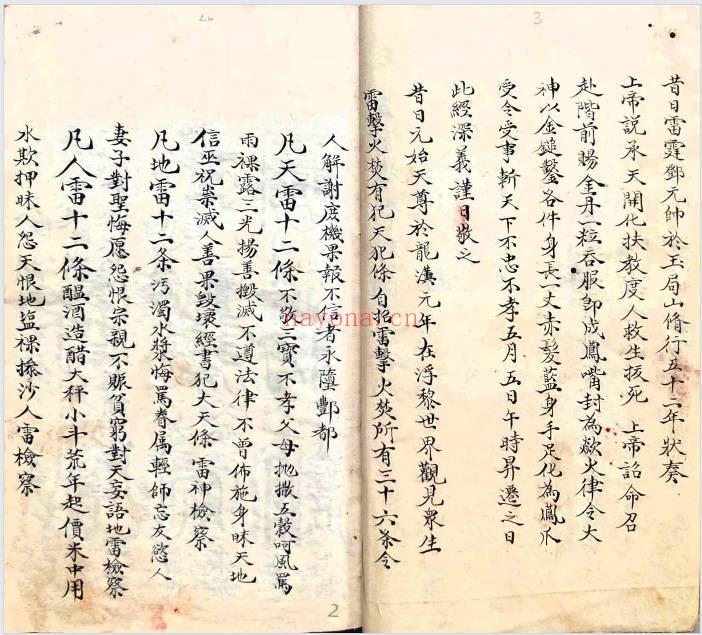 3
昔日雷霆鄧元帥於玉局山脩行五十二年狀奏
上帝説承天開化扶教度人救生拔死 上帝詔命召
赴階前賜金丹一粒吞服即成鳳嘴封為歘火律令大
神以金鎚鑿各件身長一丈赤髮藍身手足化為鳳爪
受令受事斬天下不忠不孝五月五日午時昇遷之日
此經深義謹日敬之
昔日元始天尊於龍漢元年在浮黎世界觀見衆生
雷擊火焚有犯天犯條自招雷擊火焚所有三十六条令
2
人解謝庶機果報不信者永墮酆都
凡天雷十二條不敬三寳不孝父母抛撒五穀呵風罵
雨裸露三光揚善毁滅不遵法律不曾佈施身昧天地
信巫祝祟滅人善果毁壞經書犯大天條 雷神檢察
凡地雷十二条污濁水漿悔罵眷属輕師忘友慾人
妻子對聖悔愿怨恨宗親不賑貧窮對天妄語地雷檢察
凡人雷十二條醖酒造醋大秤小斗荒年起價米中用
水欺押昧人怨天恨地塩裸搽沙人雷檢察
hayonai.cn